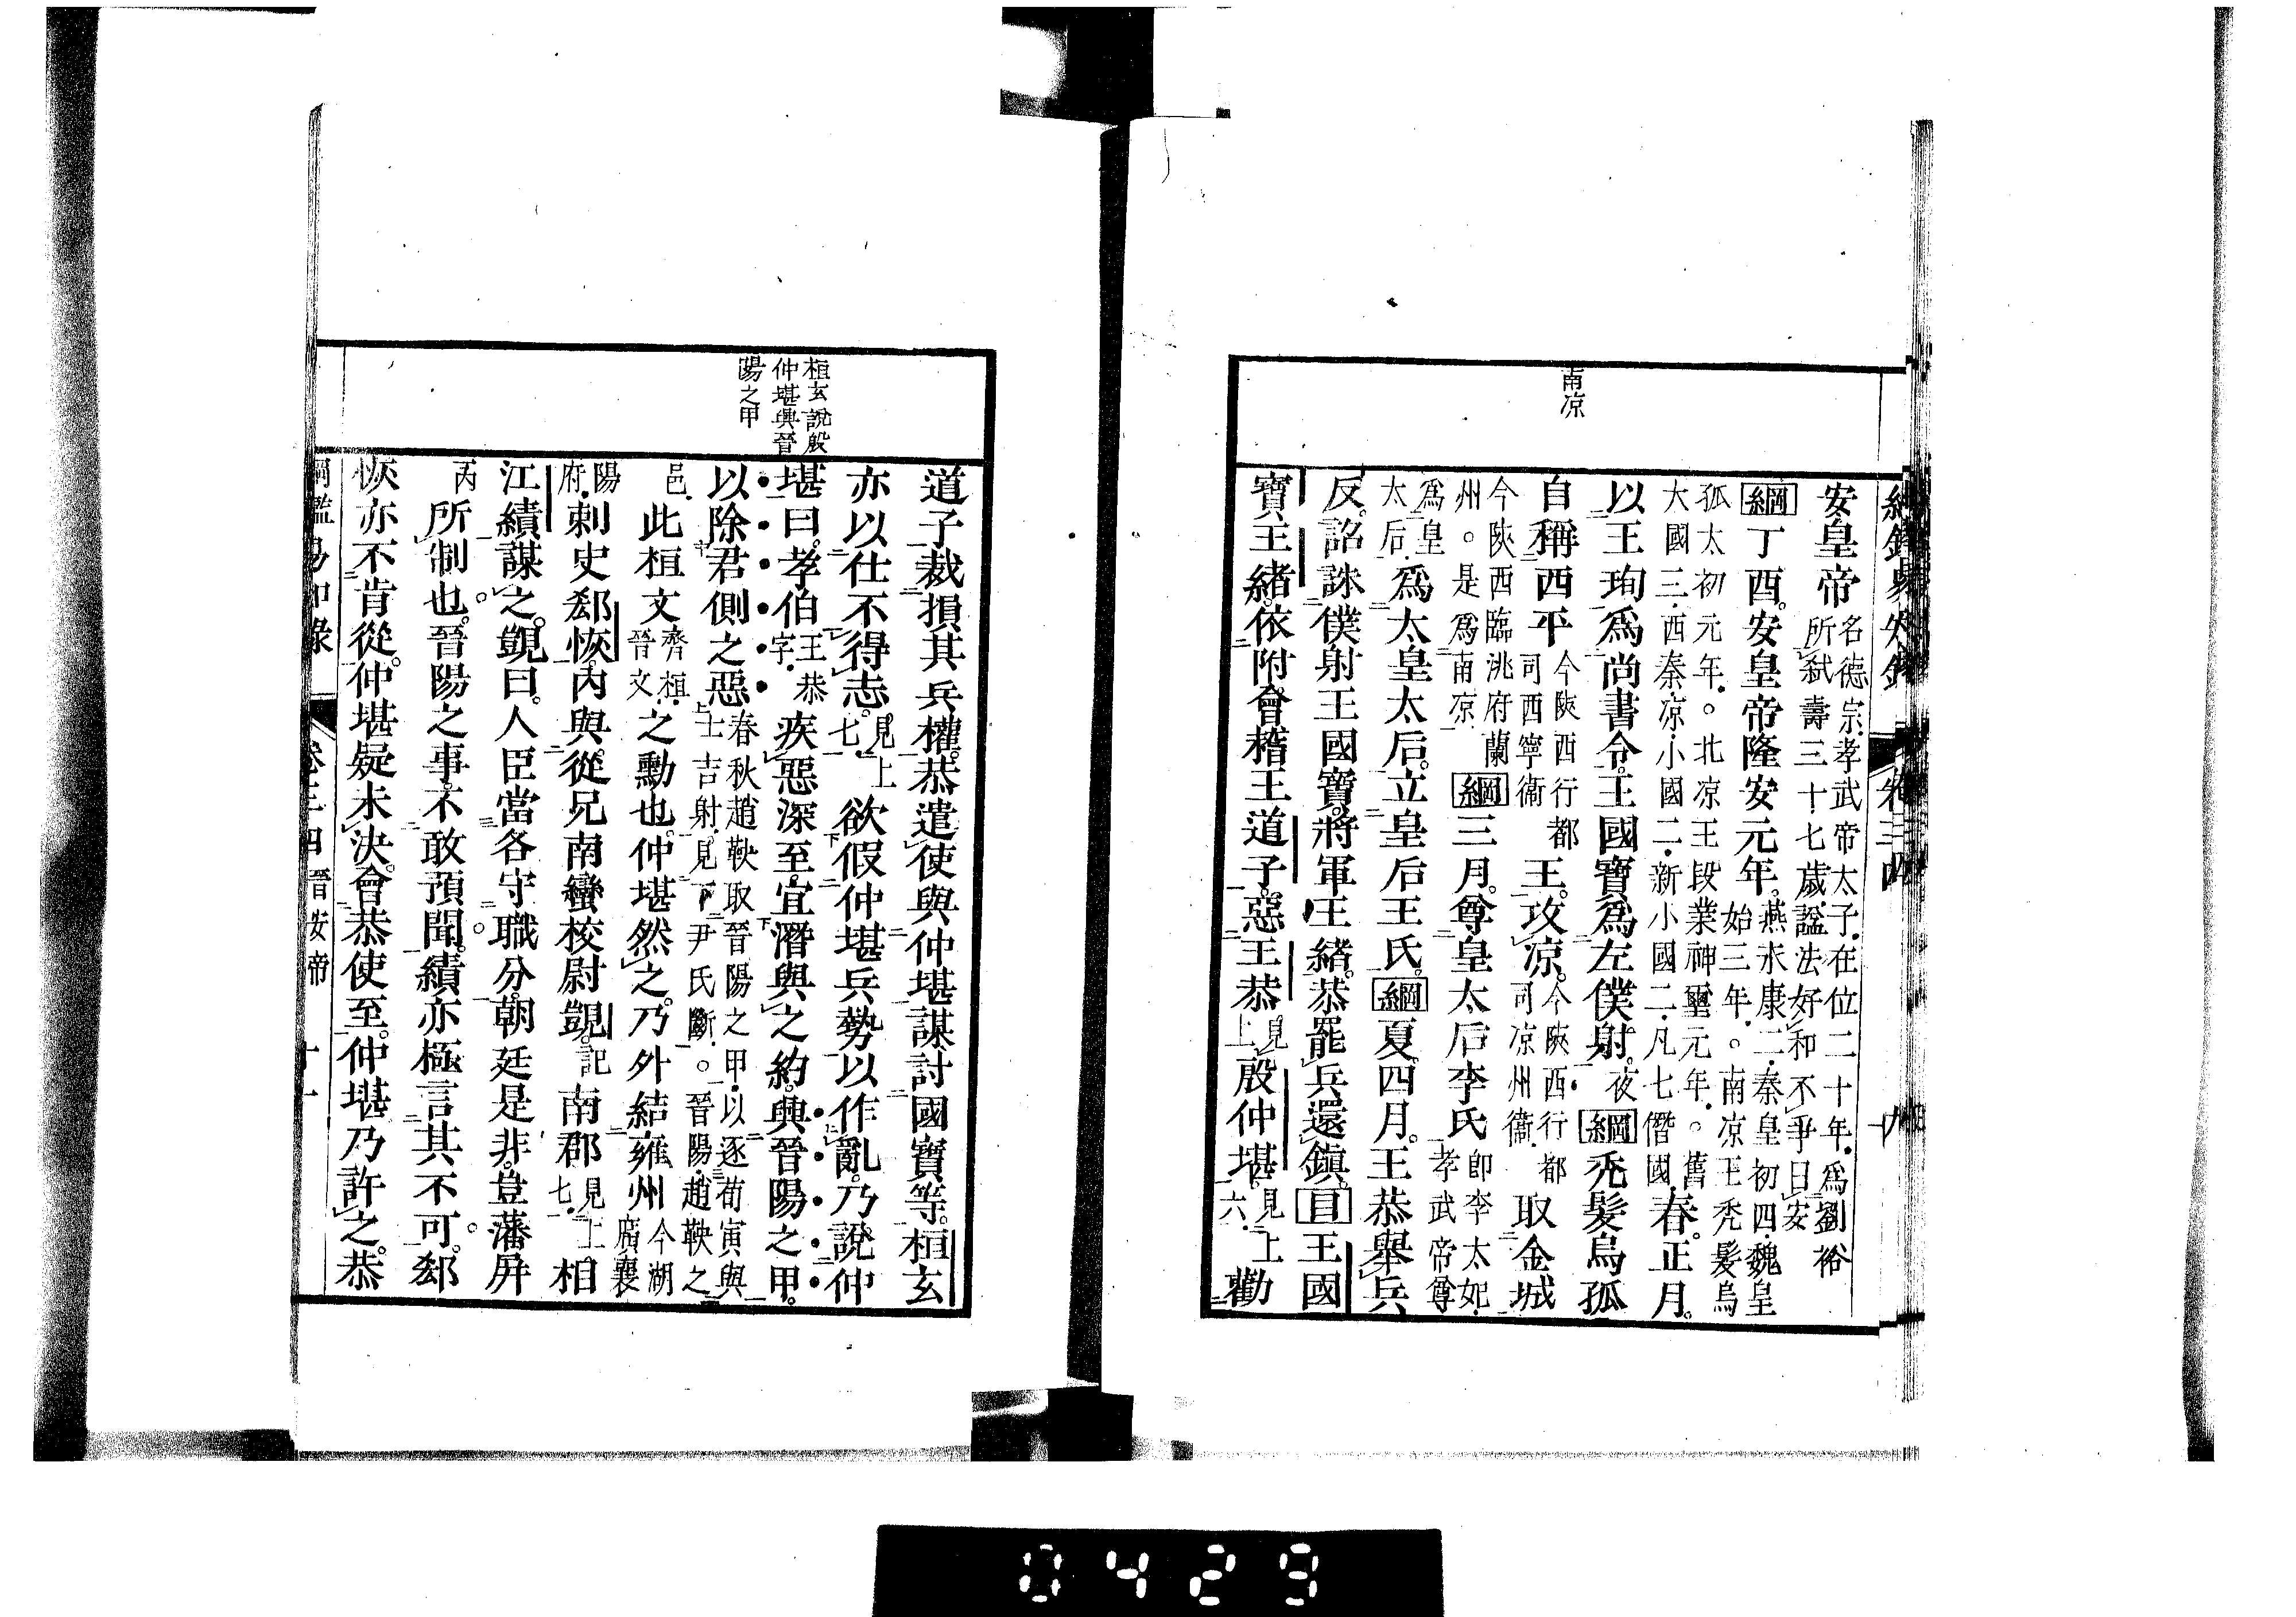 南涼
安皇帝 名德宗孝武帝太子在位二十年爲劉裕所弑壽三十七歲諡法好和不爭曰安
綱丁酉安皇帝隆安元年 燕永康二秦皇初四魏皇始三年。南涼王禿髮烏
孤太初元年。北涼王段業神璽元年。舊大國三西秦涼小國二新小國二凡七僭國 春正月
以王珣爲尚書令王國寶爲左僕射 夜 綱禿髮烏孤
自稱西平 今陝西行都司西寧衞 王攻涼 今陝西行都司涼州衞 取金城
今陝西臨洮府蘭州。是爲南涼 綱三月尊皇太后李氏 卽李太妃孝武帝尊
爲皇太后 爲太皇太后立皇后王氏綱夏四月王恭舉兵
反詔誅僕射王國寶將軍王緒恭罷兵還鎭目王國
寶王緒依附會稽王道子惡王恭 見上 殷仲堪 見上六 勸
桓玄說殷仲堪興晉陽之甲
道子裁損其兵權恭遣使與仲堪謀討國寶等桓玄
亦以仕不得志 見上七 欲假仲堪兵勢以作亂乃說仲
堪曰孝伯 王恭字 疾惡深至宜潛與之約興晉陽之甲
以除君側之惡 春秋趙鞅取晉陽之甲以逐荀寅與士吉射見下尹氏斷。晉陽趙鞅之
邑 此桓文 齊桓晉文 之勳也仲堪然之乃外結雍州 今湖廣襄
陽府 刺史郄恢內與從兄南蠻校尉覬 記 南郡 見上七 相
江績謀之覬曰人臣當各守職分朝廷是非豈藩屏
丙 所制也晉陽之事不敢預聞績亦極言其不可郄
恢亦不肯從仲堪疑未決會恭使至仲堪乃許之恭
卷三四 晉安帝
0429